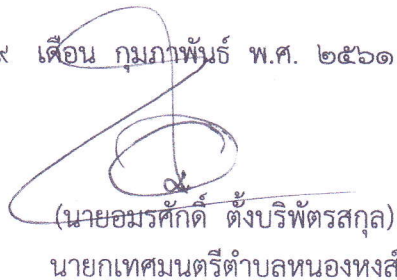 ๙ เดือน กุมภาพันธ์ พ.ศ. ๒๕๖๑
(นายอมรศักดิ์ ตั้งบริพัตรสกุล)
นายกเทศมนตรีตำบลหนองหงส์